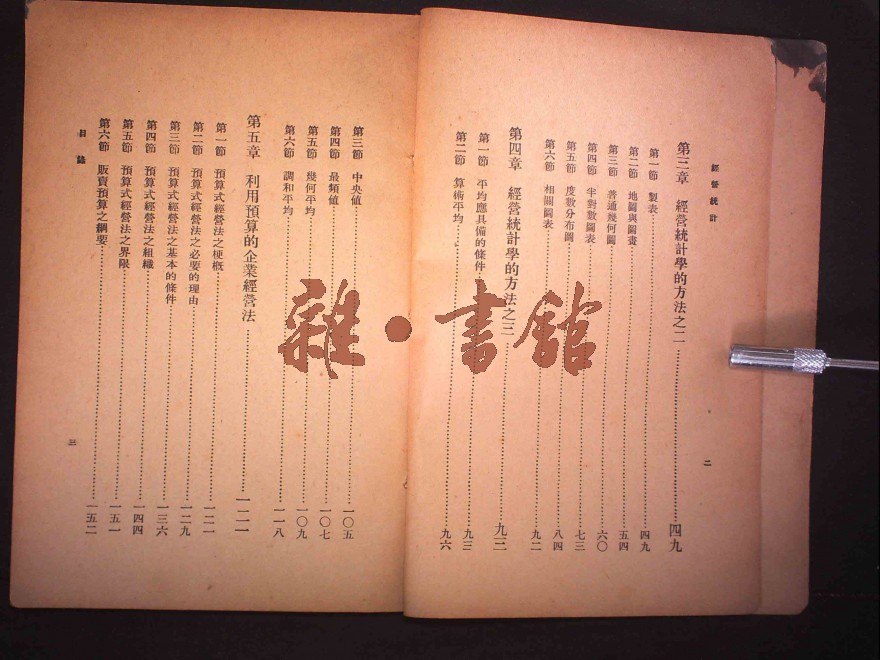 經營統計
第三章 經營統計學的方法之二 四九
第一節 製表 四九
第二節 地圖與圖畫 五四
第三節 普通幾何圖 六〇
第四節 半對數圖表 七三
第五節 度數分布圖 八四
第六節 相關圖表 九二
第四章 經營統計學的方法之三 九三
第一節 平均應具備的條件 九三
第二節 算術平均 九六
二
第三節 中央値 一〇五
第四節 最頻値 一〇七
第五節 幾何平均 一〇九
第六節 調和平均 一一八
第五章 利用預算的企業經營法 一二一
第一節 預算式經營法之梗槪 一二一
第二節 預算式經營法之必要的理由 一二九
第三節 預算式經營法之基本的條件 一三六
第四節 預算式經營法之組織 一四四
第五節 預算式經營法之界限 一五一
第六節 販賣預算之綱要 一五二
目錄
三
雜·書館